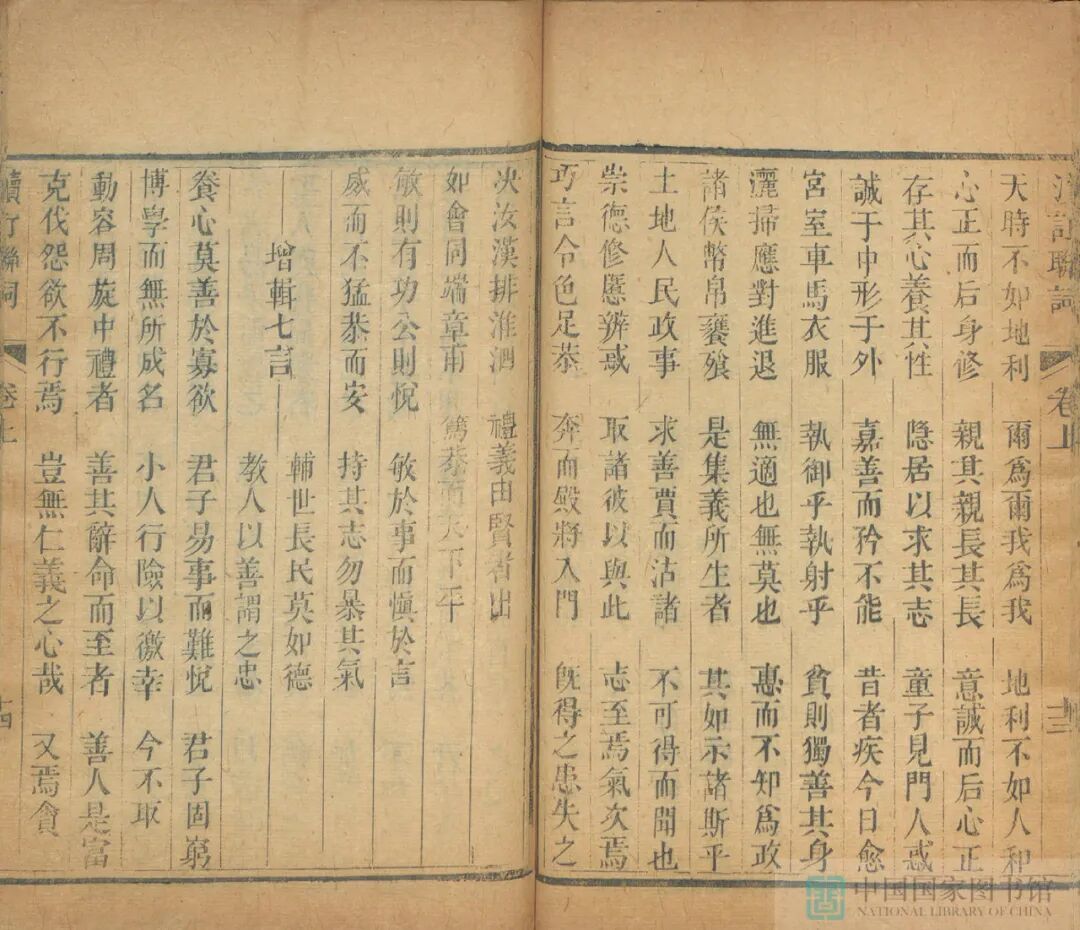 訂聯詞 卷上 十三
天時不如地利 爾為爾我為我 地利不如人和
心正而后身修 親其親長其長 意誠而后心正
存其心養其性 隱居以求其志 童子見門人惑
誠于中形于外 嘉善而矜不能 昔者疾今日愈
宮室車馬衣服 執御乎執射乎 貧則獨善其身
灑掃應對進退 無適也無莫也 惠而不知為政
諸侯幣帛饔飧 是集義所生者 其如示諸斯乎
土地人民政事 求善賈而沽諸 不可得而聞也
崇德修慝辨惑 取諸彼以與此 志至焉氣次焉
巧言令色足恭 奔而殿將入門 既得之患失之
決汝漢排淮泗 禮義由賢者出
如會同端章甫 篤恭而天下平
敏則有功公則悅 敏於事而慎於言
威而不猛恭而安 持其志勿暴其氣
增輯七言 輔世長民莫如德
教人以善謂之忠
養心莫善於寡欲 君子易事而難悅 君子固窮
博學而無所成名 小人行險以徼幸 今不取
動容周旋中禮者 善其辭命而至者 善人是富
克伐怨欲不行焉 豈無仁義之心哉 又焉貪
續訂聯詞 卷上 十四
中国国家图书馆
NATIONAL LIBRARY OF CHINA